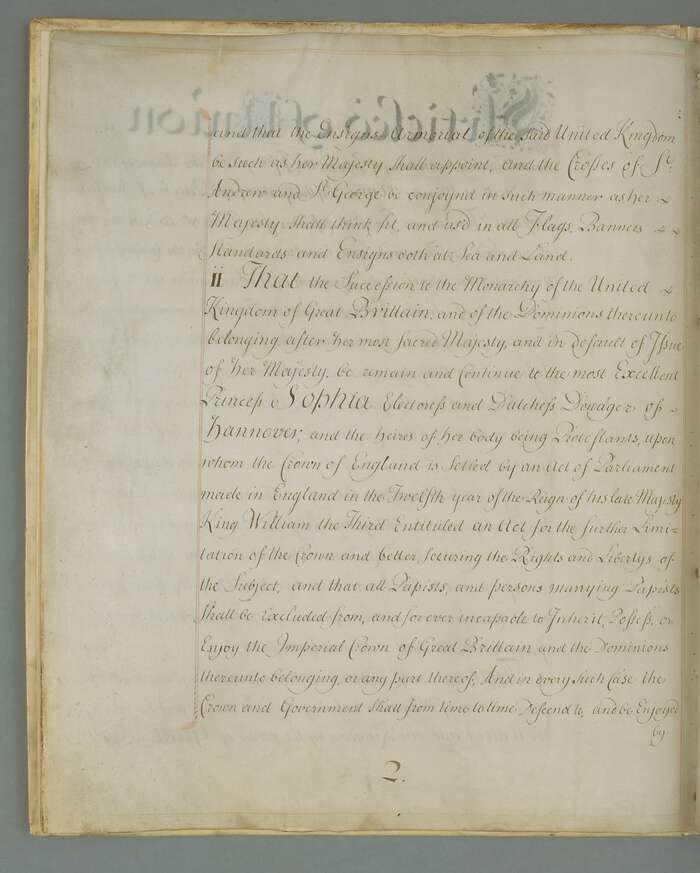 and that the Ensigns Armorial of the said United Kingdom
be such as her Majesty shall appoint, and the Crosses of St.
Andrew and St George be conjoynd in such manner as her
Majesty shall think fit, and us'd in all Flags, Banners
Standards and Ensigns both at Sea and Land.
II That the Succession to the Monarchy of the United
Kingdom of Great Brittain, and of the Dominions thereunto
belonging after her most sacred Majesty, and in default of Issue
of her Majesty, be remain and Continue to the most Excellent
Princess Sophia Electoress and Dutchess Dowager of
Hannover, and the heires of her body being Protestants, upon
whom the Crown of England is Setled by an Act of Parliament
made in England in the Twelfth year of the Reign of his late Majesty
King William the Third Entituled an Act for the further Limi-
tation of the Crown and better securing the Rights and Libertys of
the Subject, and that all Papists, and persons marrying Papists
shall be Excluded from, and for ever incapable to Inherit, Possess, or
Enjoy the Imperial Crown of Great Brittain and the Dominions
thereunto belonging, or any part thereof, And in every such Case the
Crown and Government shall from time to time Descend to, and be Enjoyed
by
2.